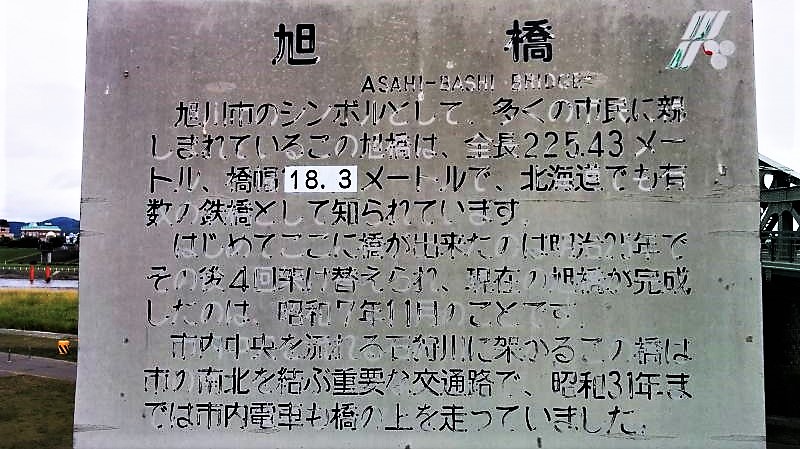 旭橋
ASAHI-BASHI BRIDGE
旭川市のシンボルとして、多くの市民に親
しまれているこの旭橋は、全長225.43メー
トル、橋幅18.3メートルで、北海道でも有
数の鉄橋として知られています。
はじめてここに橋が出来たのは明治25年で
その後4回架け替えられ、現在の旭橋が完成
したのは、昭和7年11月のことです。
市内中央を流れる石狩川に架かるこの橋は
市の南北を結ぶ重要な交通路で、昭和31年ま
では市内電車も橋の上を走っていました。